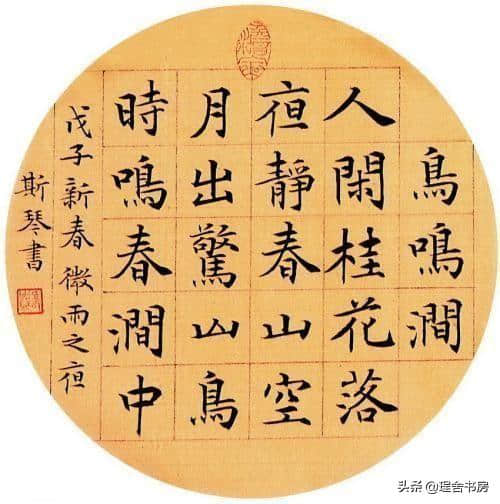 鳥鳴澗
人閑桂花落
夜靜春山空
月出驚山鳥
時鳴春澗中
戊子新春微雨之夜
斯琴書
头条 @理舍书房